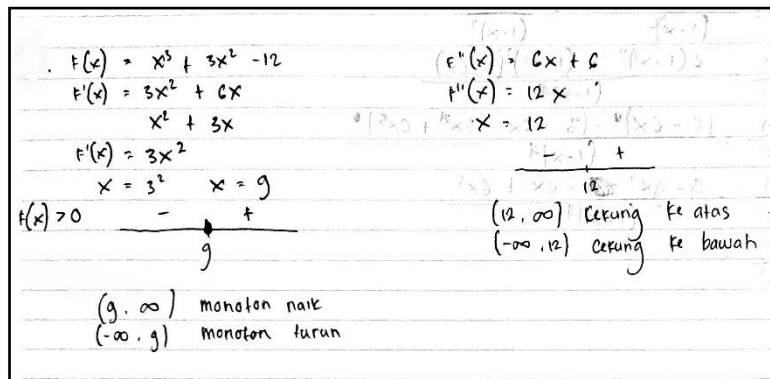 . f(x) = x³ + 3x² - 12
f'(x) = 3x² + 6x
x² + 3x
f'(x) = 3x²
x = 3² x = 9
f(x) > 0 - +
9
(9, ∞) monoton naik
(-∞, 9) monoton turun
f"(x) = 6x + 6
f"(x) = 12 x
x = 12
- +
12
(12, ∞) cekung ke atas
(-∞, 12) cekung ke bawah